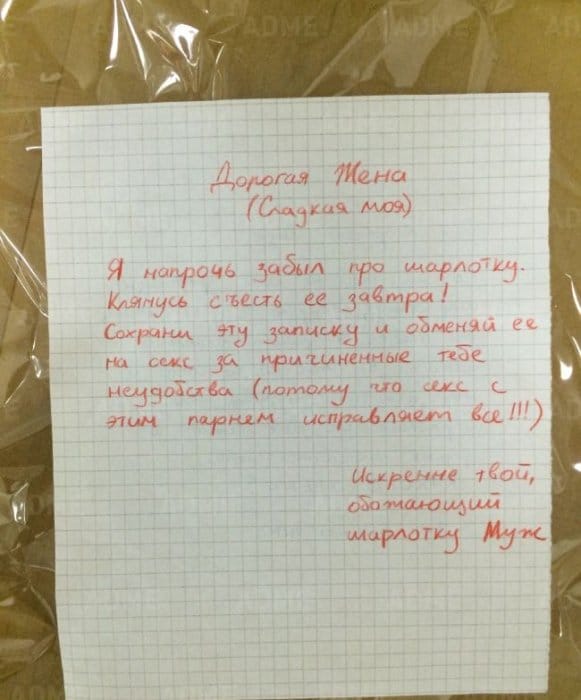 Дорогая Жена
(Сладкая моя)
Я напрочь забыл про шарлотку.
Клянусь съесть ее завтра!
Сохрани эту записку и обменяй ее
на секс за причиненные тебе
неудобства (потому что секс с
этим парнем исправляет все!!!)
Искренне твой,
обожающий
шарлотку Муж
ADME